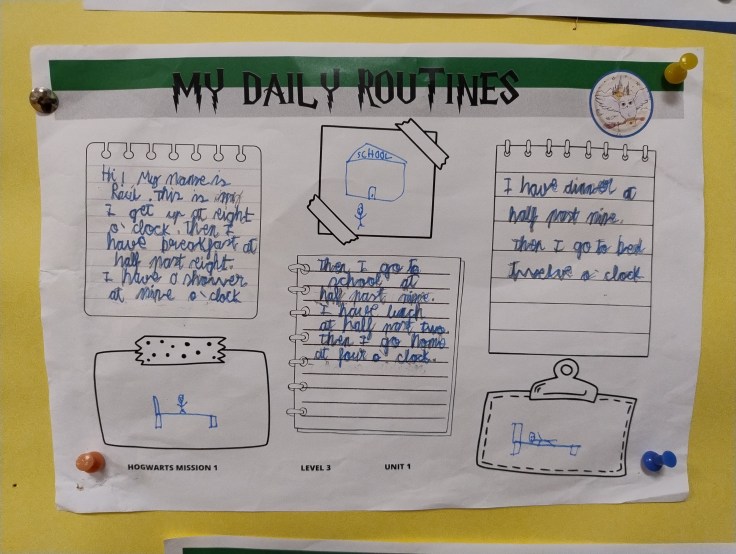 MY DAILY ROUTINES
Hi! My name is
Raúl. This is my
I get up at eight
o'clock. Then I
have breakfast at
half past eight.
I have a shower
at nine o'clock
SCHOOL
Then I go to
school at
half past nine.
I have lunch
at half past two.
Then I go home
at four o'clock.
I have dinner at
half past nine.
Then I go to bed
Twelve o'clock
HOGWARTS MISSION 1
LEVEL 3
UNIT 1